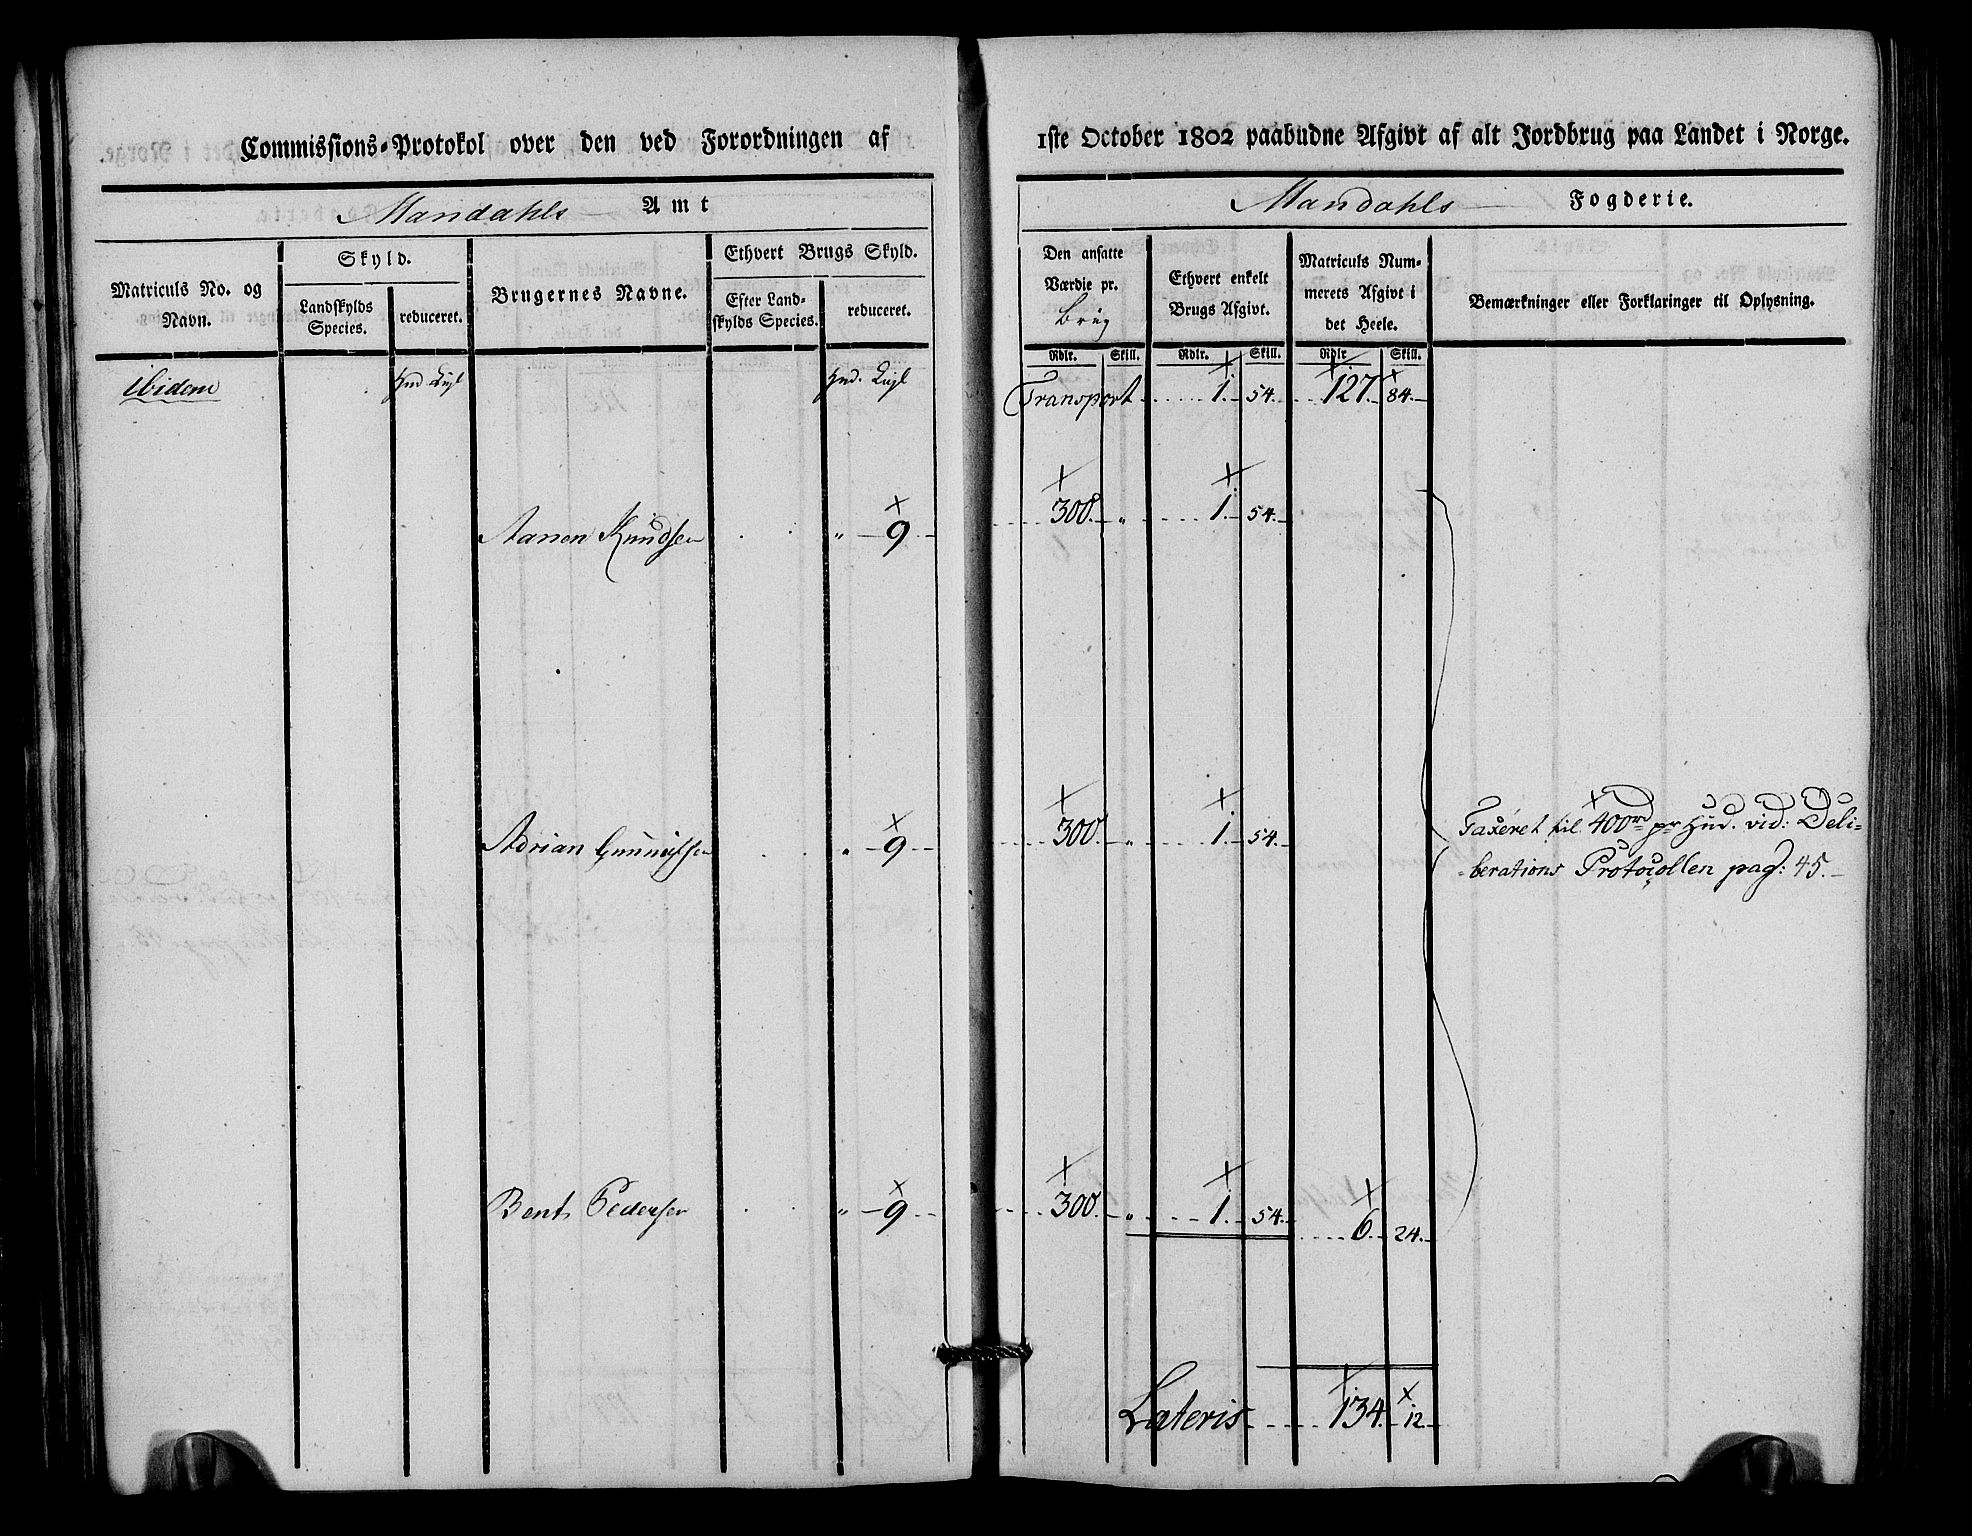 Commissions-Protokol over den ved Forordningen af
1ste October 1802 paabudne Afgivt af alt Jordbrug paa Landet i Norge.
Mandahls Amt
Mandahls Fogderie.
Matriculs No. og Navn.
Skyld.
Landskylds Species.
reduceret.
Brugernes Navne.
Ethvert Brugs Skyld.
Efter Landskylds Species.
reduceret.
Den ansatte Værdie pr. brug
Ethvert enkelt Brugs Afgivt.
Matriculs Nummerets Afgivt i det Heele.
Bemærkninger eller Forklaringer til Oplysning.
Rdlr. Skill. Rdlr. Skill. Rdlr Skill.
ibidem Hud Hud. Transport 1. 54. 127. 84.
Aanen Knudsen " 9 300. " 1. 54.
Adrian " 9 300. " 1. 54. Taxeret til 400rd pr Hud. vid: Deli=
=berations Protocollen pag: 45.
Bent Pedersen " 9 300. " 1. 54. 6. 24.
Lateris 134. 12